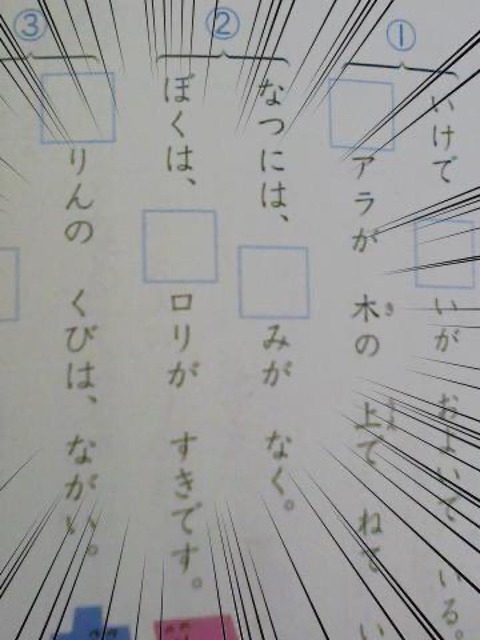 ①
いけで□いが およいで いる。
□アラが 木の 上で ねて い
き
②
なつには、□みが なく。
ぼくは、□ロリが すきです。
③
□りんの くびは、ながい。